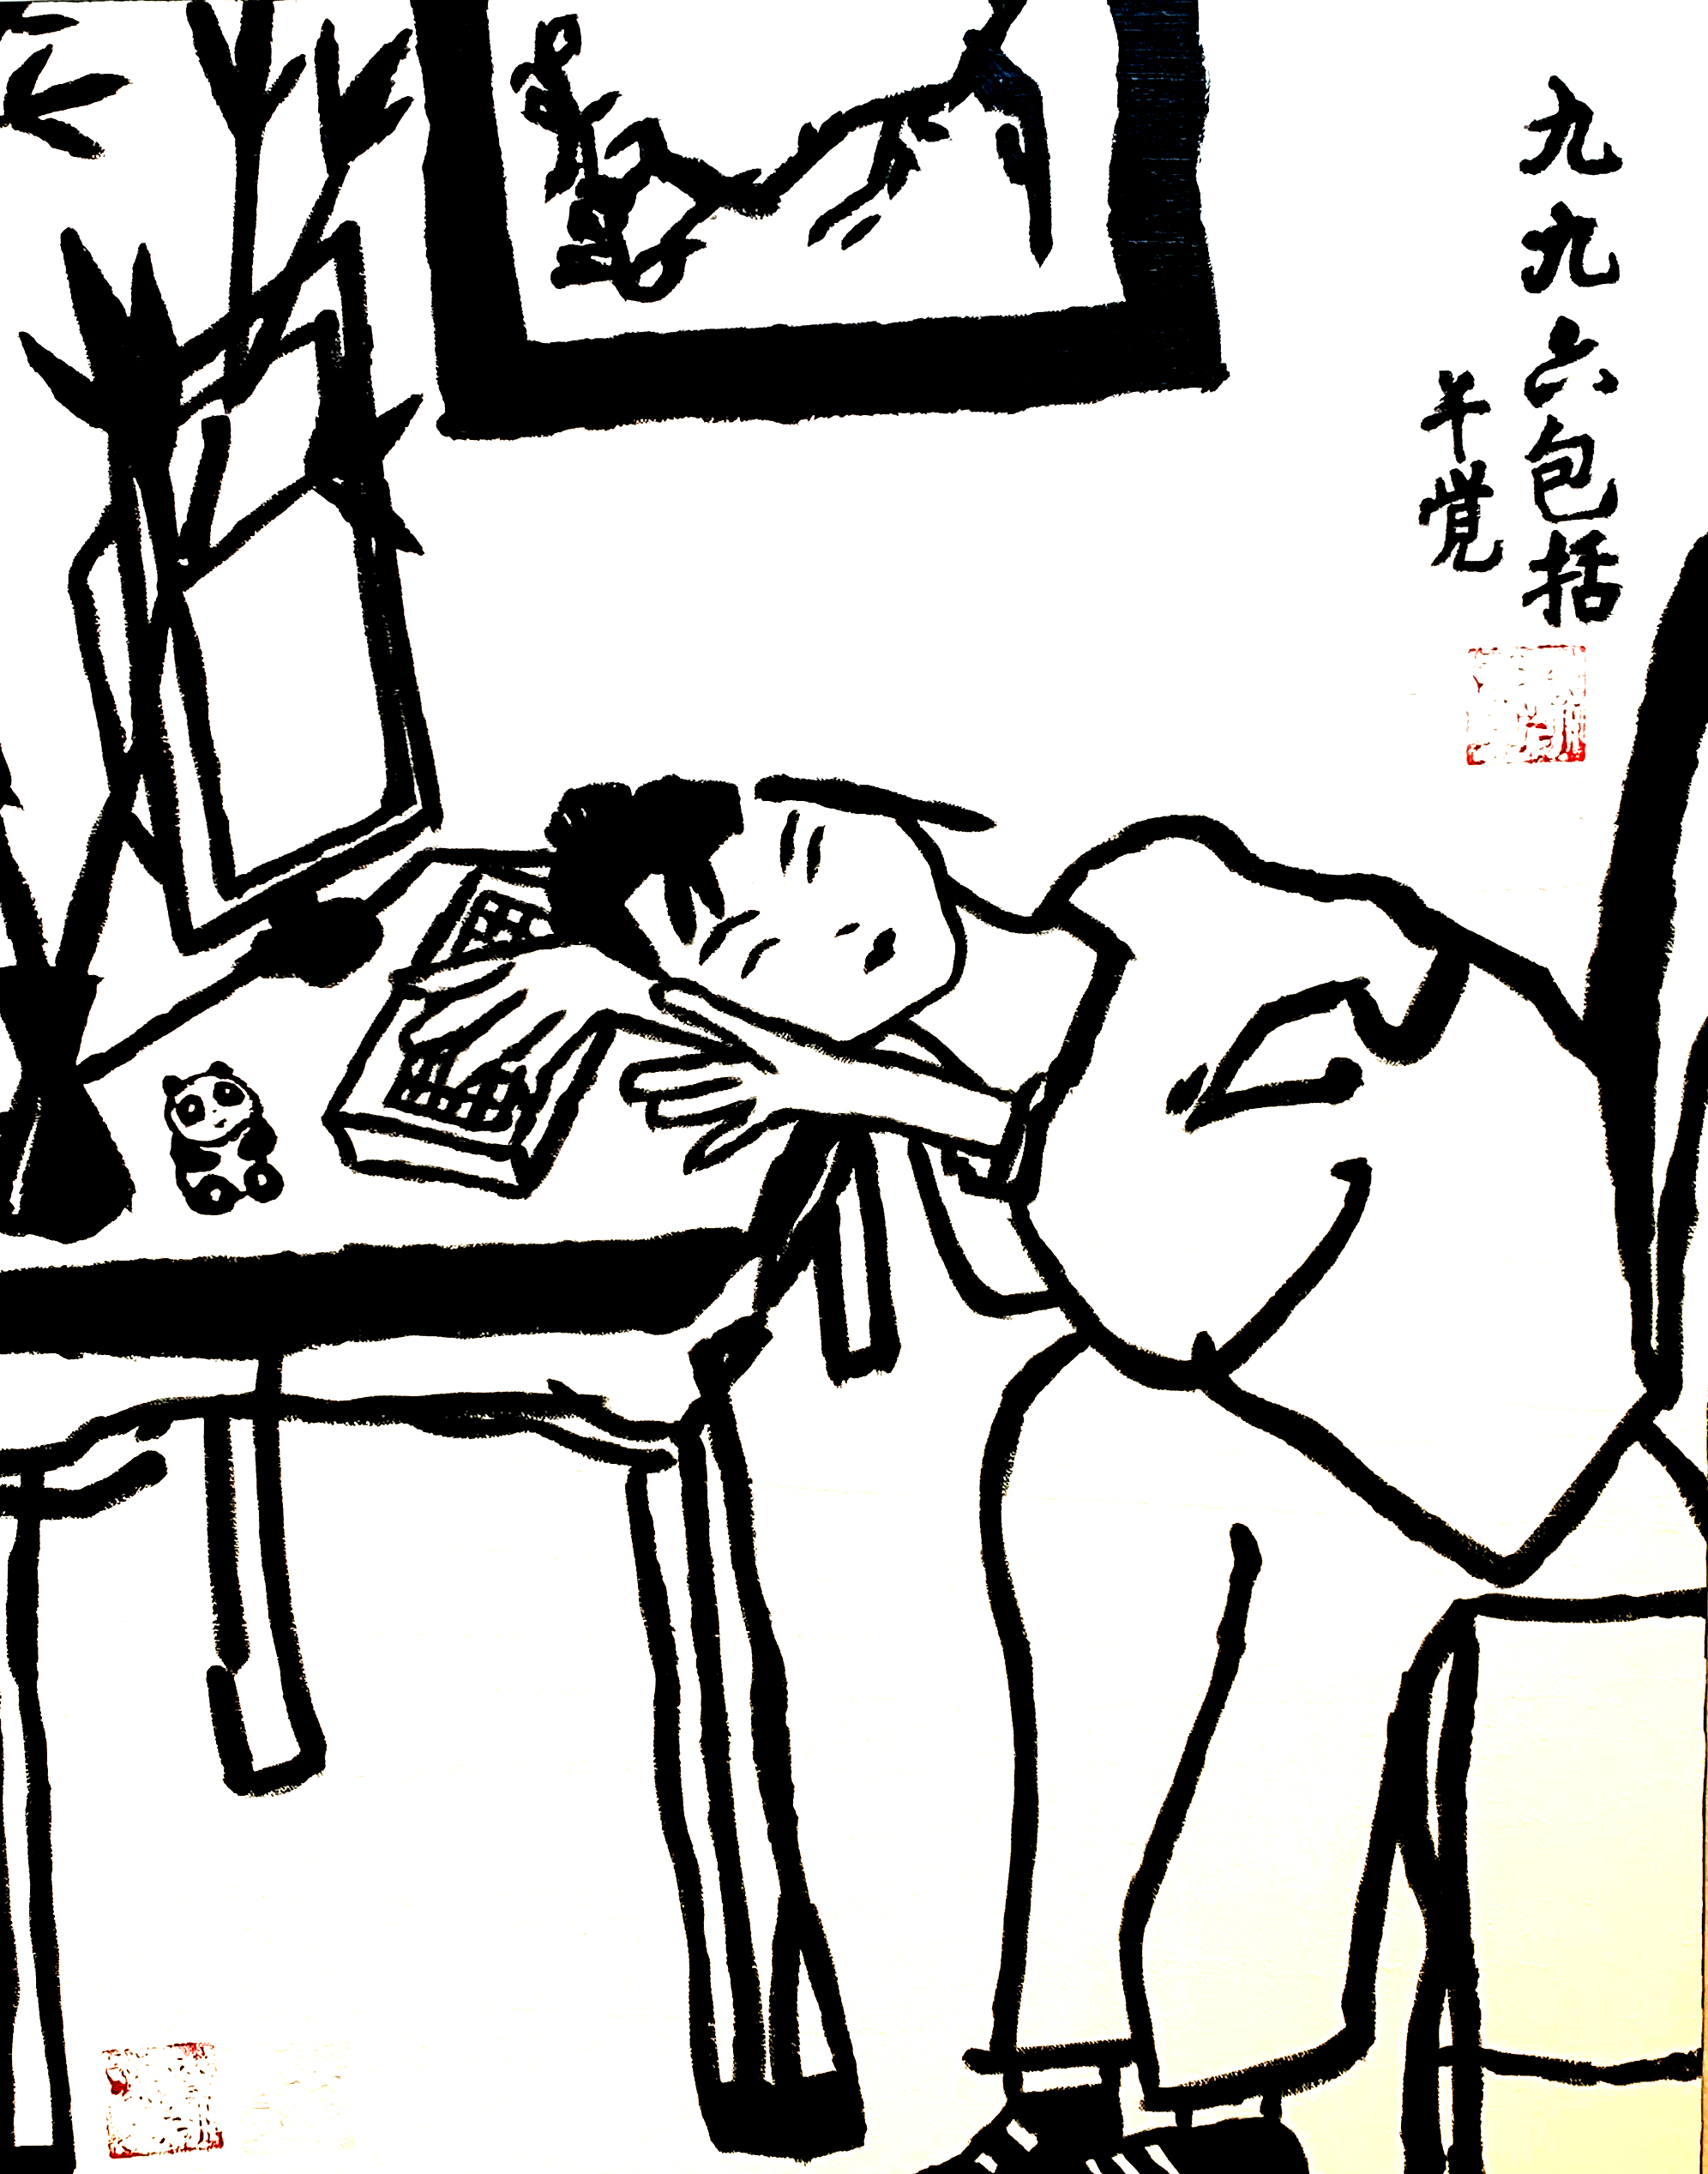 九九六包括
半覚